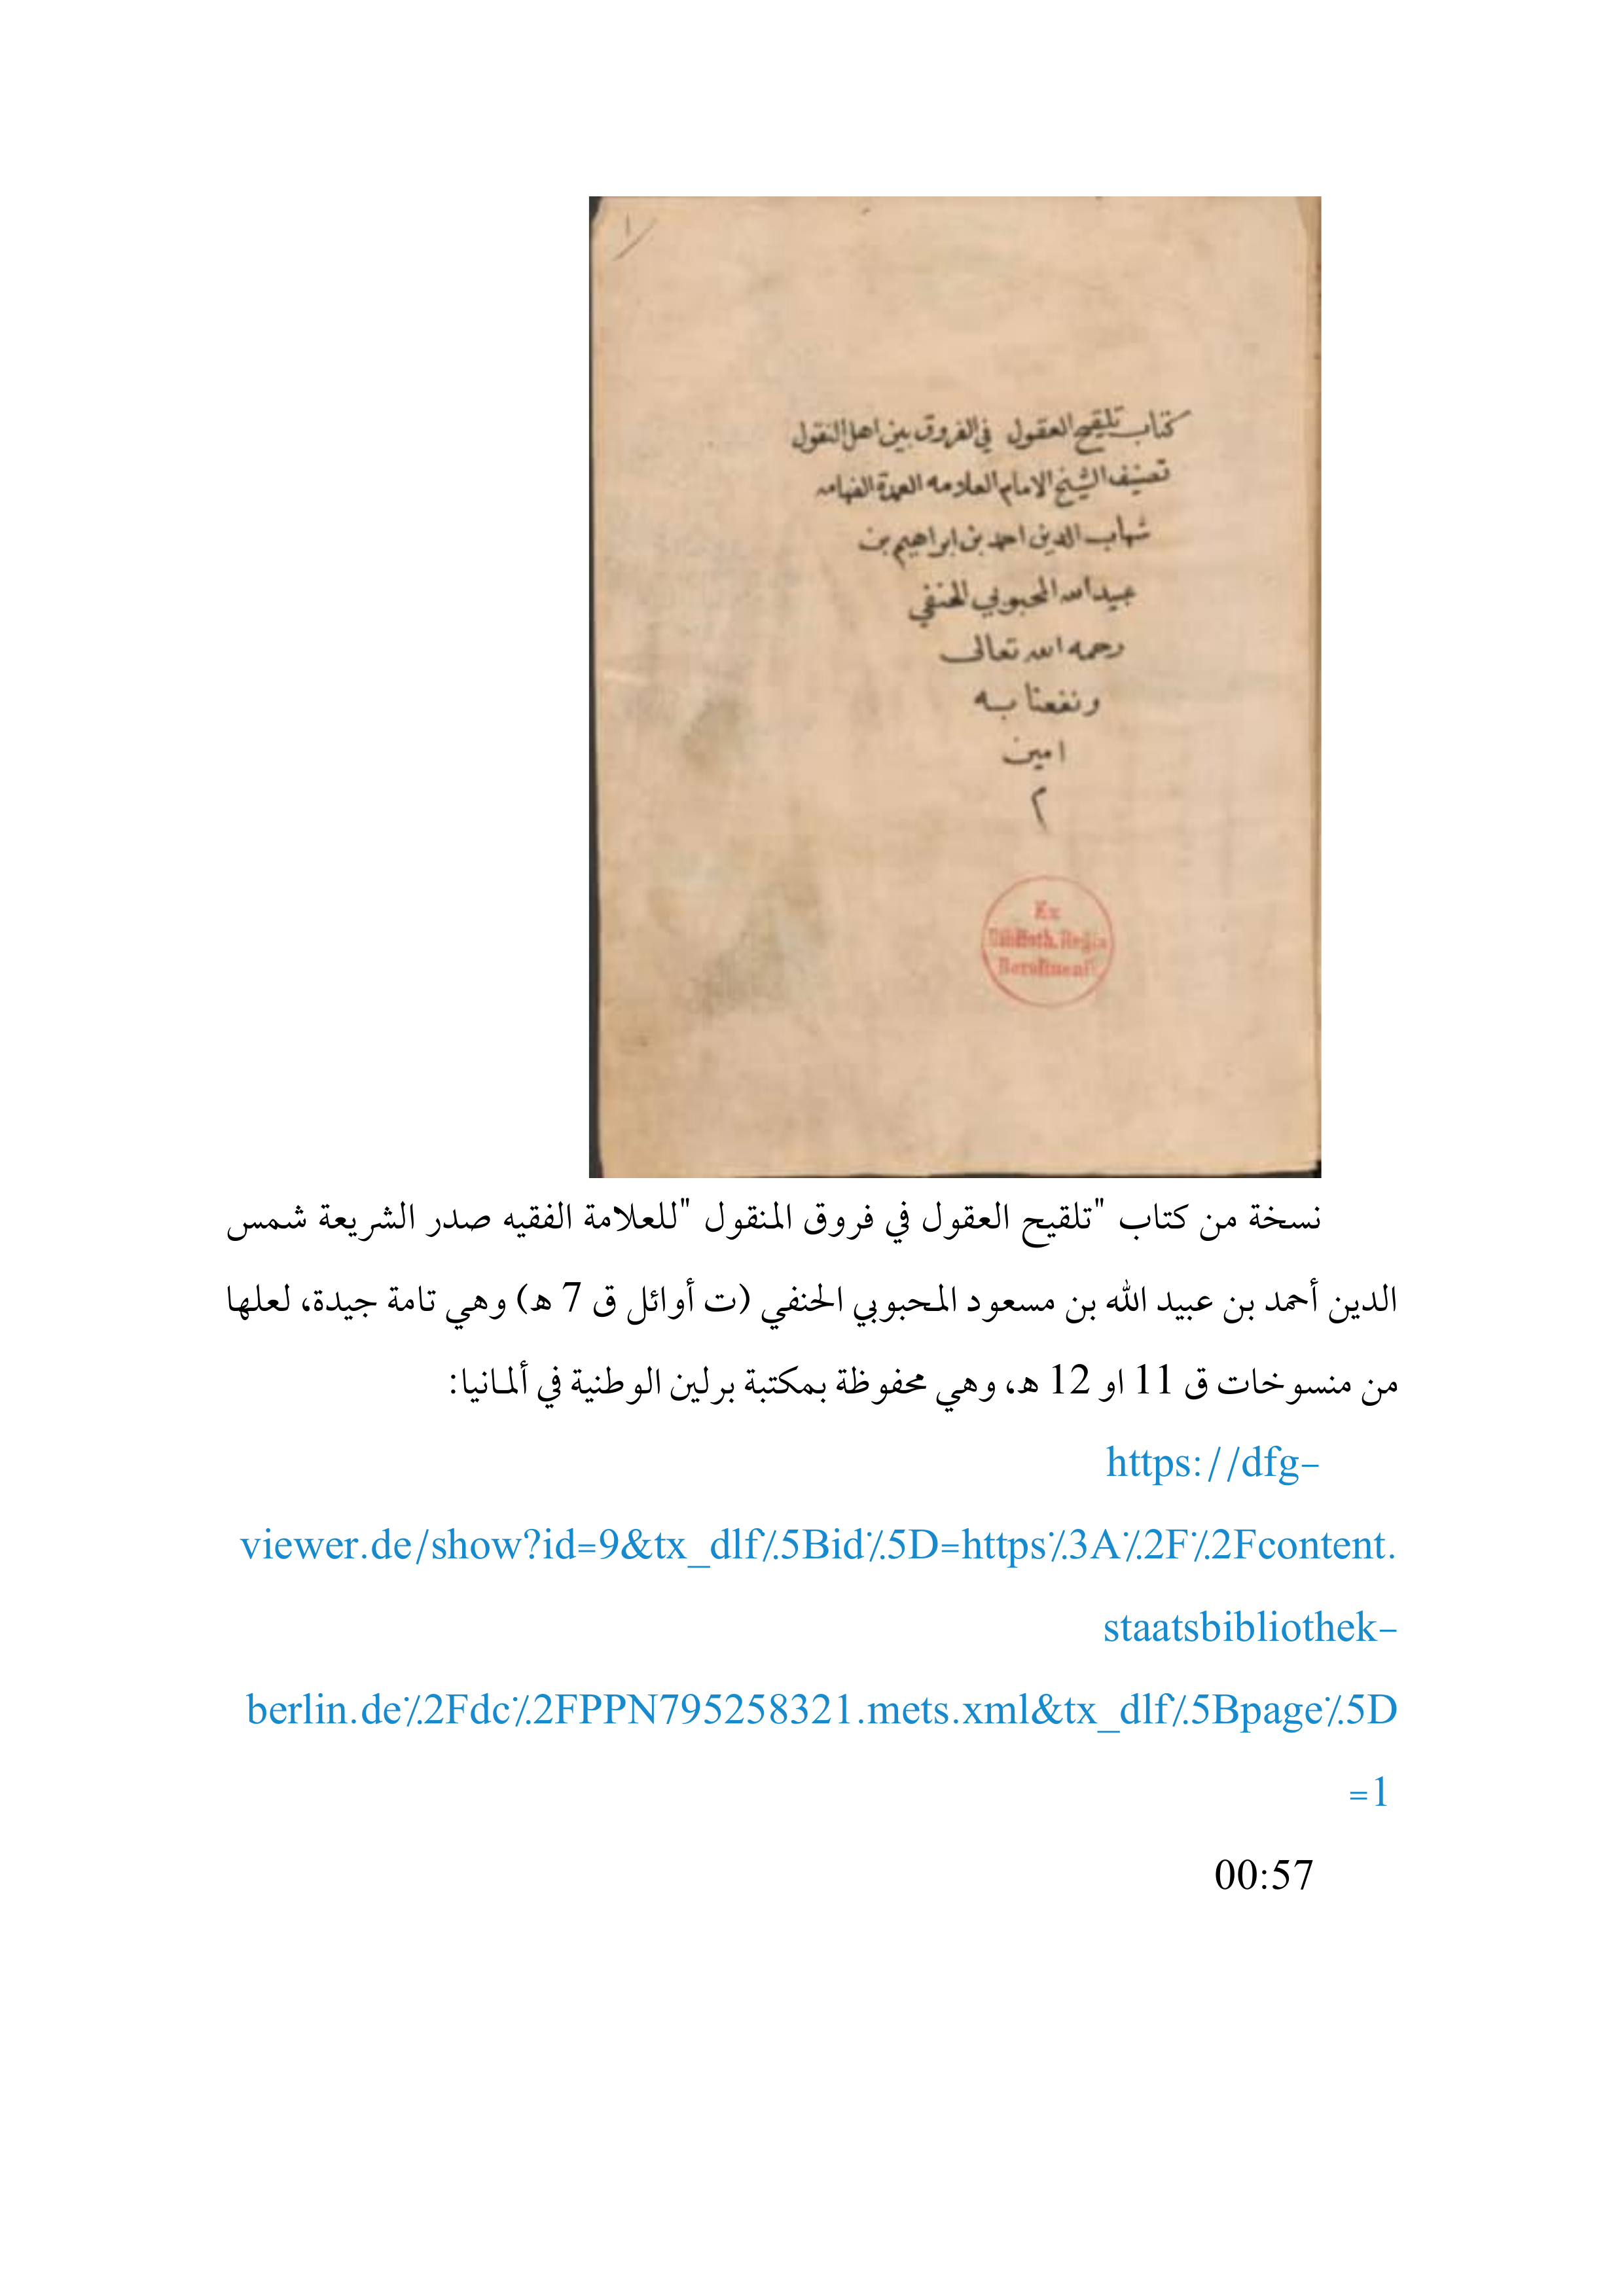 ١
كتاب تلقيح العقول في الفروق بين اهل النقول
تصنيف الشيخ الامام العلامه العمدة الفهامه
شهاب الدين احمد بن ابراهيم بن
عبيد الله المحبوبي الحنفي
رحمه الله تعالى
ونفعنا به
امين
م
Ex
Biblioth. Regia
Berolinensi.
نسخة من كتاب "تلقيح العقول في فروق المنقول "للعلامة الفقيه صدر الشريعة شمس
الدين أحمد بن عبيد الله بن مسعود المحبوبي الحنفي (ت أوائل ق 7 ه) وهي تامة جيدة، لعلها
من منسوخات ق 11 او 12 ه، وهي محفوظة بمكتبة برلين الوطنية في ألمانيا:
https://dfg-
viewer.de/show?id=9&tx_dlf٪5Bid٪5D=https٪3A٪2F٪2Fcontent.
staatsbibliothek-
berlin.de٪2Fdc٪2FPPN795258321.mets.xml&tx_dlf٪5Bpage٪5D
=1
00:57